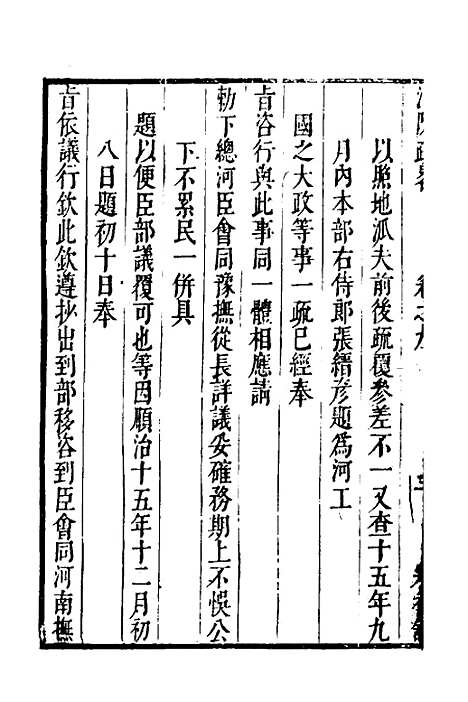 卷之九
以照地派夫前後疏覆參差不一又查十五年九
月內本部右侍郎張縉彥題爲河工
國之大政等事一疏已經奉
旨咨行與此事同一體相應請
勅下總河臣會同豫撫從長詳議妥確務期上不悞公
下不累民一併具
題以便臣部議覆可也等因順治十五年十二月初
八日題初十日奉
旨依議行欽此欽遵抄出到部移咨到臣會同河南撫